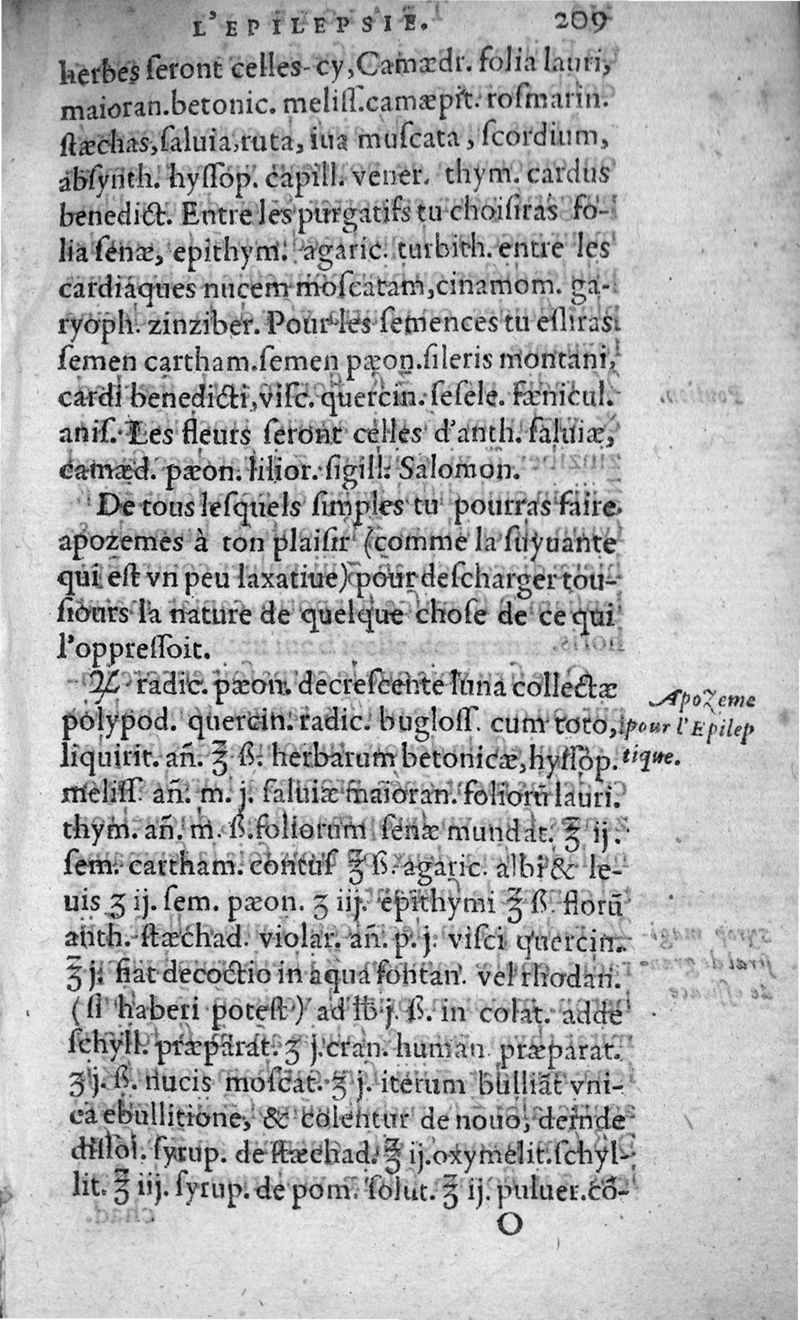 L'EPILEPSIE. 209
herbes ſeront celles-cy, Camædr. folia lauri,
maioran. betonic. meliſſ. camæpit. roſmarin.
ſtæchas, ſaluia, ruta, iua muſcata, ſcordium,
abſynth. hyſſop. capill. vener. thym. cardus
benedict. Entre les purgatifs tu choiſiras fo-
lia ſenæ, epithym. agaric. turbith. entre les
cardiaques nucem moſcatam, cinamom. ga-
ryoph. zinziber. Pour les ſemences tu eſliras
ſemen cartham. ſemen pæon. ſileris montani,
cardi benedicti, viſc. quercin. ſeſele. fænicul.
aniſ. Les fleurs ſeront celles d'anth. ſaluiæ,
camæd. pæon. lilior. ſigill. Salomon.
De tous leſquels ſimples tu pourras faire
apozemes à ton plaiſir (comme la ſuyuante
qui eſt vn peu laxatiue) pour deſcharger tou-
ſiours la nature de quelque choſe de ce qui
l'oppreſſoit.
℞ radic. pæon. decreſcente luna collectæ
polypod. quercin. radic. bugloſſ. cum toto,
liquirit. añ. ℥ ß. herbarum betonicæ, hyſſop.
meliſſ. añ. m. j. ſaluiæ maioran. foliorũ lauri.
thym. añ. m. ß. foliorum ſenæ mundat. ℥ ij.
ſem. cartham. contuſ ℥ ß. agaric. albi & le-
uis ʒ ij. ſem. pæon. ʒ iij. epithymi ℥ ß. florũ
anth. ſtæchad. violar. añ. p. j. viſci quercin.
℥ j. fiat decoctio in aqua fontan. vel rhodan.
(ſi haberi poteſt) ad ℔ j. ß. in colat. adde
ſchyll. præparat. ʒ j. cran. human. præparat.
ʒ j. ß. nucis moſcat. ʒ j. iterum bulliãt vni-
ca ebullitione, & colentur de nouo, deinde
diſſol. ſyrup. de ſtæchad. ℥ ij. oxymelit. ſchyl-
lit. ℥ iij. ſyrup. de pom. ſolut. ℥ ij. puluer. cõ-
O
Apozeme
pour l'Epilep
tique.